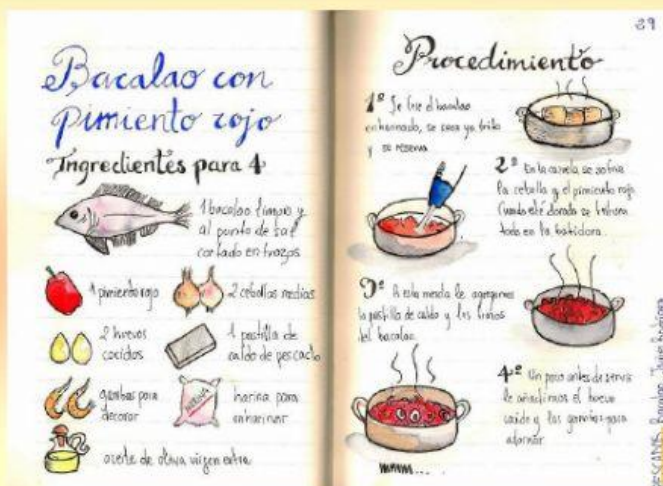 Bacalao con
pimiento rojo
Ingredientes para 4
1 bacalao limpio y
al punto de sal
cortado en trozos
1 pimiento rojo
2 cebollas medias
2 huevos
cocidos
1 pastilla de
caldo de pescado
gambas para
decorar
HARINA
harina para
enharinar
aceite de oliva virgen extra
29
Procedimiento
1º Se fríe el bacalao
enharinado, se saca ya frito
y se reserva
2º En la cazuela se sofríe
la cebolla y el pimiento rojo
Cuando esté dorado se tritura
todo en la batidora.
3º A esta mezcla le agregamos
la pastilla de caldo y los trozos
del bacalao.
4º Un poco antes de servir
le añadimos el huevo
cocido y las gambas para
adornar
PESCADOS